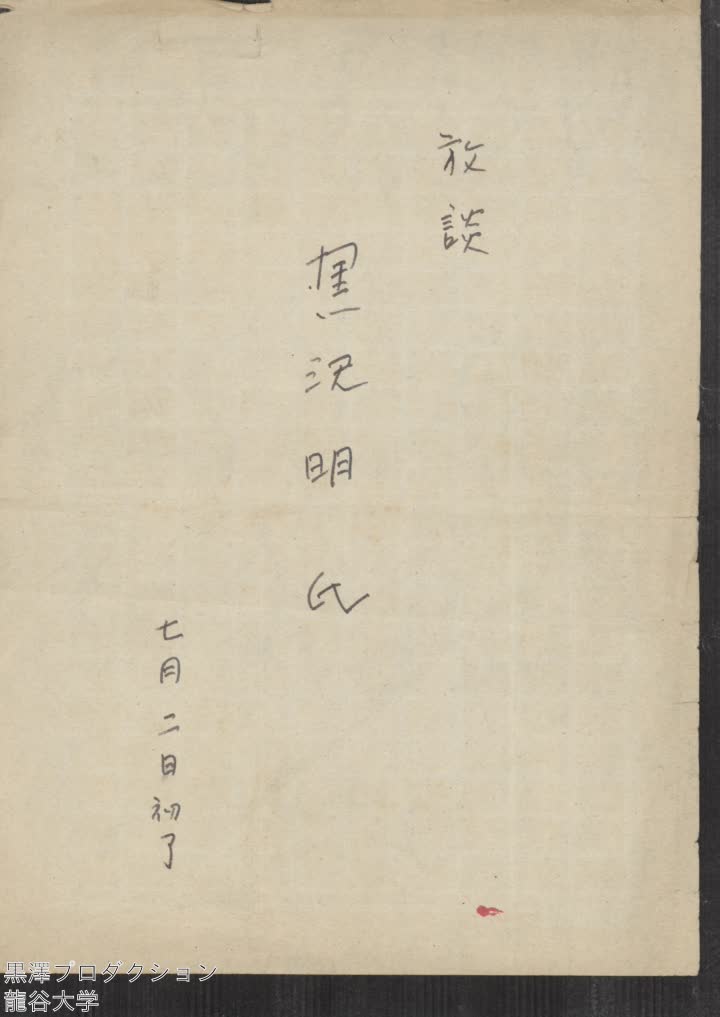 放談
黒沢明氏
七月二日初了
黒澤プロダクション
龍谷大学